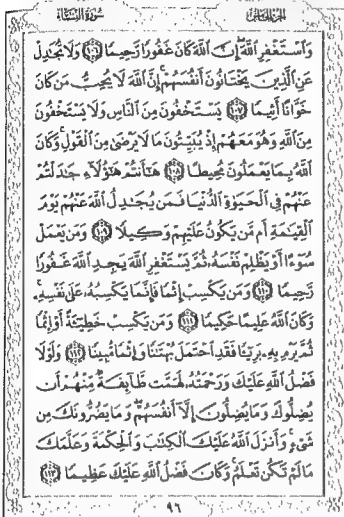 سورة النساء
الجزء الخامس
وَٱسْتَغْفِرِ ٱللَّهَ إِنَّ ٱللَّهَ كَانَ غَفُورًا رَّحِيمًا ١٠٦ وَلَا تُجَٰدِلْ
عَنِ ٱلَّذِينَ يَخْتَانُونَ أَنفُسَهُمْ إِنَّ ٱللَّهَ لَا يُحِبُّ مَن كَانَ
خَوَّانًا أَثِيمًا ١٠٧ يَسْتَخْفُونَ مِنَ ٱلنَّاسِ وَلَا يَسْتَخْفُونَ
مِنَ ٱللَّهِ وَهُوَ مَعَهُمْ إِذْ يُبَيِّتُونَ مَا لَا يَرْضَىٰ مِنَ ٱلْقَوْلِ وَكَانَ
ٱللَّهُ بِمَا يَعْمَلُونَ مُحِيطًا ١٠٨ هَٰٓأَنتُمْ هَٰٓؤُلَآءِ جَٰدَلْتُمْ
عَنْهُمْ فِى ٱلْحَيَوٰةِ ٱلدُّنْيَا فَمَن يُجَٰدِلُ ٱللَّهَ عَنْهُمْ يَوْمَ
ٱلْقِيَٰمَةِ أَم مَّن يَكُونُ عَلَيْهِمْ وَكِيلًا ١٠٩ وَمَن يَعْمَلْ
سُوٓءًا أَوْ يَظْلِمْ نَفْسَهُۥ ثُمَّ يَسْتَغْفِرِ ٱللَّهَ يَجِدِ ٱللَّهَ غَفُورًا
رَّحِيمًا ١١٠ وَمَن يَكْسِبْ إِثْمًا فَإِنَّمَا يَكْسِبُهُۥ عَلَىٰ نَفْسِهِۦ
وَكَانَ ٱللَّهُ عَلِيمًا حَكِيمًا ١١١ وَمَن يَكْسِبْ خَطِيٓـَٔةً أَوْ إِثْمًا
ثُمَّ يَرْمِ بِهِۦ بَرِيٓـًٔا فَقَدِ ٱحْتَمَلَ بُهْتَٰنًا وَإِثْمًا مُّبِينًا ١١٢ وَلَوْلَا
فَضْلُ ٱللَّهِ عَلَيْكَ وَرَحْمَتُهُۥ لَهَمَّت طَّآئِفَةٌ مِّنْهُمْ أَن
يُضِلُّوكَ وَمَا يُضِلُّونَ إِلَّآ أَنفُسَهُمْ وَمَا يَضُرُّونَكَ مِن
شَىْءٍ وَأَنزَلَ ٱللَّهُ عَلَيْكَ ٱلْكِتَٰبَ وَٱلْحِكْمَةَ وَعَلَّمَكَ
مَا لَمْ تَكُن تَعْلَمُ وَكَانَ فَضْلُ ٱللَّهِ عَلَيْكَ عَظِيمًا ١١٣
٩٦